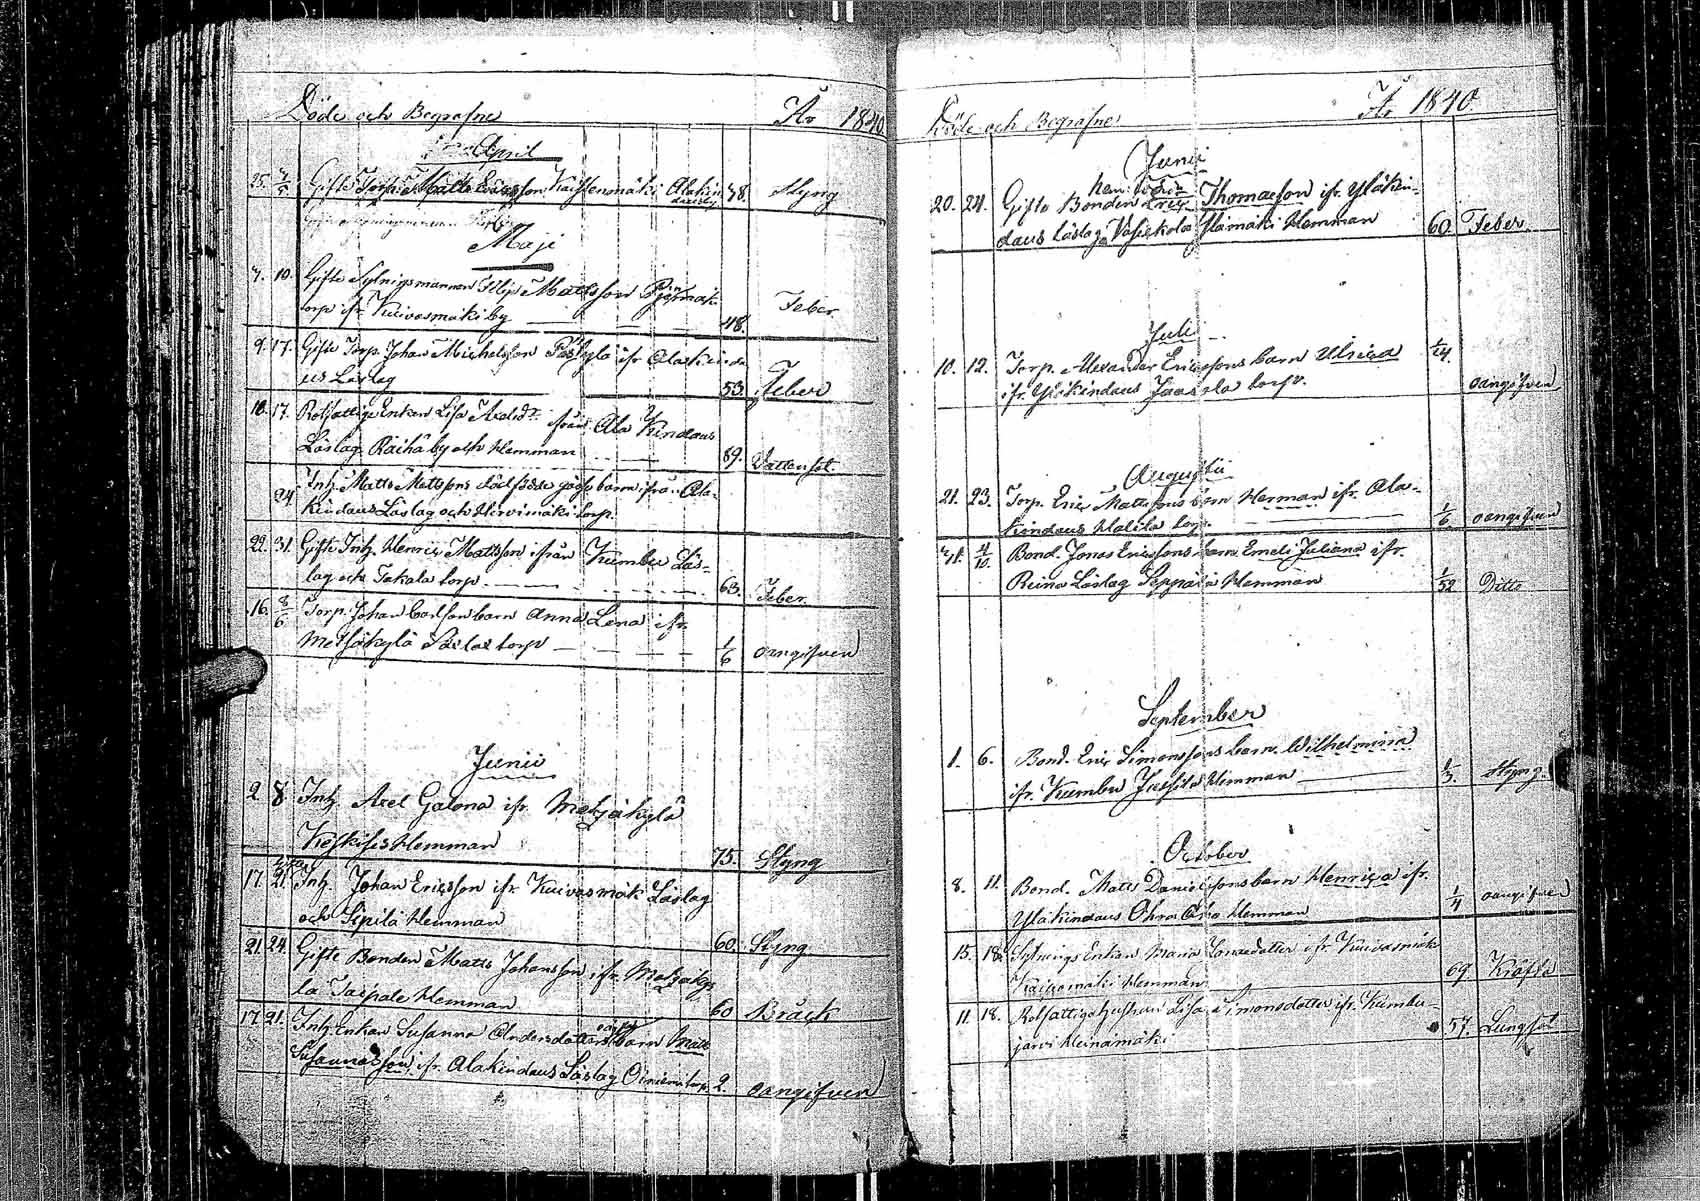 Döde och Begrafne År 1840
April
25. 3/5 Gifte Torp. Matts Ericsson Kaistenmäki Alakin 48. Styng
dausby
Maji
7. 10. Gifte Sytningsmannen Filip Mattsson
torp ifr. Kuivasmäki by 48. Feber
9. 17. Gifte Torp. Johan Michelsson ifr. Alakinda
us Låslag 53. Feber
10. 17. Rotfattige Enkan Lisa från Ala Kindaus
Låslag Raihä by och Hemman 89. Vattensot.
24 Inh. Matts Mattsons dödfödde gosse barn ifrån Ala-
kindaus Låslag och Hirvimäki torp.
22. 31. Gifte Inh. Henric Mattsson ifrån Kumbu Lås-
lag och Takala torp 63. Feber
16. 8/6 Torp. Johan Carlson barn Anna Lena ifr.
Metsäkylä torp 1/6 oangifven
Junii
2. 8. Inh. Axel Galona ifr. Metzäkylä
Keskises Hemman 75. Styng
17. 21. Inh. Johan Ericsson ifr. Kuivasmäki Låslag
och Sipilä Hemman 60. Styng
21. 24. Gifte Bonden Matts Johansson ifr. Metzäky
la Taipale Hemman 60 Bråck
17. 21. Inh. Enkan Susanna Andersdotters oägta barn Matts
Susannasson ifr. Alakindaus Låslag torp. 2. oangifven
Döde och Begrafne År 1840
Junii
20. 24. Gifte Bonden Thomasson ifr. Yläkin-
daus Låslag Ylämäki Hemman 60. Feber.
Juli
10. 12. Torp. Alexander Ericssons barn Ulrica 1/24.
ifr. Yläkindaus torp. oangifven
Augusti
21. 23. Torp. Eric Mattssons barn Herman ifr. Ala-
kindaus torp. 1/6 oangifven
31. 4/10. Bond. Jonas Ericssons barn Emeli Juliana ifr.
Reino Låslag Seppälä Hemman 1/52 Ditto
September
1. 6. Bond. Eric Simonssons barn Wilhelmina
ifr. Kumbu Jussila Hemman 1/3. Styng.
October
8. 11. Bond. Matts Danielssons barn Henrica ifr.
Yläkindaus Hemman 1/4 oangifven
15. 18. Sytnings Enkan Maria ifr. Kuivasmäki
Hemman 69. Kräfta
11. 18. Rotfattiga hustrun Lisa Simonsdotter ifr. Kumbu-
järvi Heinämäki 57. Lungsot